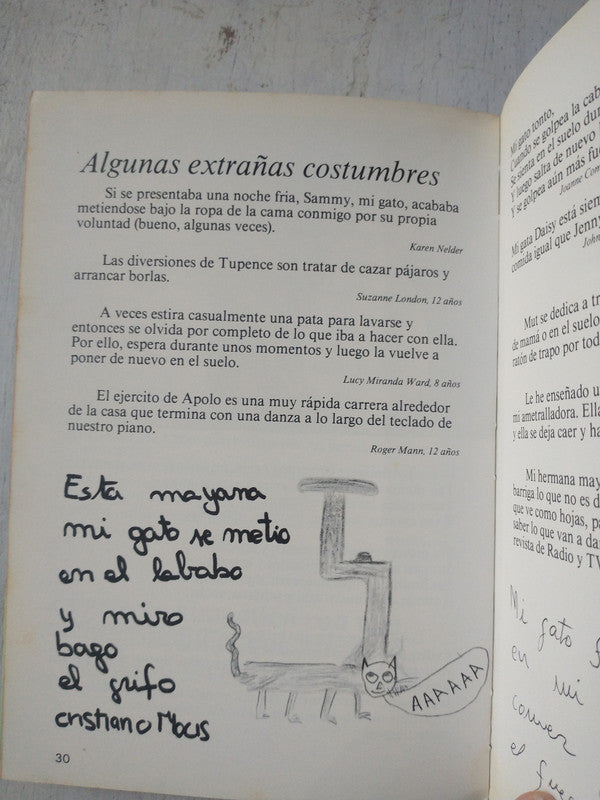 Algunas extrañas costumbres
Si se presentaba una noche fria, Sammy, mi gato, acababa
metiendose bajo la ropa de la cama conmigo por su propia
voluntad (bueno, algunas veces).
Karen Nelder
Las diversiones de Tupence son tratar de cazar pájaros y
arrancar borlas.
Suzanne London, 12 años
A veces estira casualmente una pata para lavarse y
entonces se olvida por completo de lo que iba a hacer con ella.
Por ello, espera durante unos momentos y luego la vuelve a
poner de nuevo en el suelo.
Lucy Miranda Ward, 8 años
El ejercito de Apolo es una muy rápida carrera alrededor
de la casa que termina con una danza a lo largo del teclado de
nuestro piano.
Roger Mann, 12 años
Esta mayana
mi gato se metio
en el lababo
y miro
bago
el grifo
cristiano
AAAAAA
30
Mi gato tonto,
Cuando se golpea la
Se sienta en el suelo
Y luego salta de nuevo
Y se golpea aún más
Joanne
Mi gata Daisy está
comida igual que Jenny
John
Mut se dedica a
de mamá o en el suelo
ratón de trapo por
Le he enseñado
mi ametralladora.
y ella se deja caer y
Mi hermana
barriga lo que no es
que ve como hojas,
saber lo que van a
revista de Radio y
Mi gato
en mi
comer
el